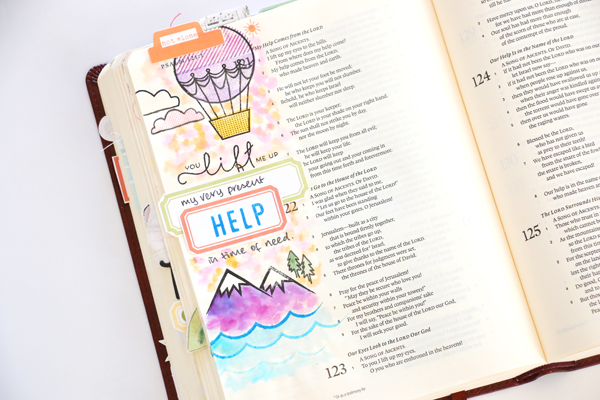 not alone
YOU lift ME UP
my very present
HELP
in time of need.
My Help Comes from the LORD
A SONG OF ASCENTS.
I lift up my eyes to the hills.
From where does my help come?
My help comes from the LORD,
who made heaven and earth.
He will not let your foot be moved;
he who keeps you will not slumber.
Behold, he who keeps Israel
will neither slumber nor sleep.
The LORD is your keeper;
the LORD is your shade on your right hand.
The sun shall not strike you by day,
nor the moon by night.
The LORD will keep you from all evil;
he will keep your life.
The LORD will keep
your going out and your coming in
from this time forth and forevermore.
Let Us Go to the House of the LORD
22
A SONG OF ASCENTS. OF DAVID.
I was glad when they said to me,
"Let us go to the house of the LORD!"
Our feet have been standing
within your gates, O Jerusalem!
Jerusalem—built as a city
that is bound firmly together,
to which the tribes go up,
the tribes of the LORD,
as was decreed for Israel,
to give thanks to the name of the LORD.
There thrones for judgment were set,
the thrones of the house of David.
Pray for the peace of Jerusalem!
"May they be secure who love you!
Peace be within your walls
and security within your towers!"
For my brothers and companions' sake
I will say, "Peace be within you!"
For the sake of the house of the LORD our God,
I will seek your good.
Our Eyes Look to the LORD Our God
123
A SONG OF ASCENTS.
To you I lift up my eyes,
O you who are enthroned in the heavens!
Have mercy upon us, O LORD,
for we have had more than enough of
Our soul has had more than enough
of the scorn of those who are at ease,
of the contempt of the proud.
Our Help Is in the Name of the LORD
124
A SONG OF ASCENTS. OF DAVID.
If it had not been the LORD who was on
let Israel now say—
if it had not been the LORD who was on
when people rose up against us,
then they would have swallowed us up
when their anger was kindled
then the flood would have swept us
the torrent would have gone over
then over us would have gone
the raging waters.
Blessed be the LORD,
who has not given us
as prey to their teeth!
We have escaped like a bird
from the snare of the
the snare is broken,
and we have escaped!
Our help is in the name
who made
The LORD Surrounds His
125
A SONG OF ASCENTS.
Those who trust in the
which cannot be
As the mountains
so the LORD
from this
For the scepter
on the land
lest the right
their hands
Do good, O